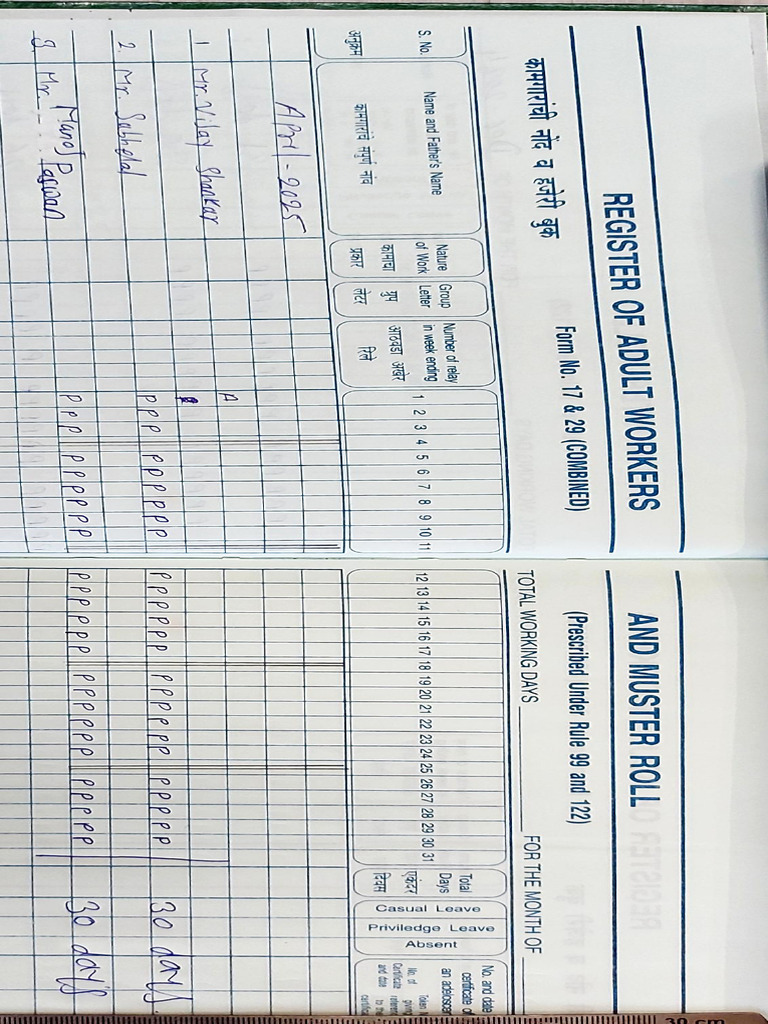 REGISTER OF ADULT WORKERS
Form No. 17 & 29 (COMBINED)
कामगारांची नोंद व हजेरी बुक
S. No.
अनुक्रम
Name and Father's Name
कामगारांचे संपुर्ण नांव
Nature of Work
कामाचा प्रकार
Group Letter
ग्रुप लेटर
Number of relay in week ending
आठवडा अखेर रिले
1 2 3 4 5 6 7 8 9 10 11
AND MUSTER ROLL
(Prescribed Under Rule 99 and 122)
TOTAL WORKING DAYS FOR THE MONTH OF
12 13 14 15 16 17 18 19 20 21 22 23 24 25 26 27 28 29 30 31
Total Days
एकंदर दिवस
Casual Leave
Priviledge Leave
Absent
No. and date
certificate of
an adolescen
April - 2025
1 Mr. Vijay Shankar A
2. Mr. P P P P P P P P P P P P P P P P P P P P P P P P P P P P 30 days
3. Mr. Manoj Paswan P P P P P P P P P P P P P P P P P P P P P P P P P P P P 30 days
30 cm